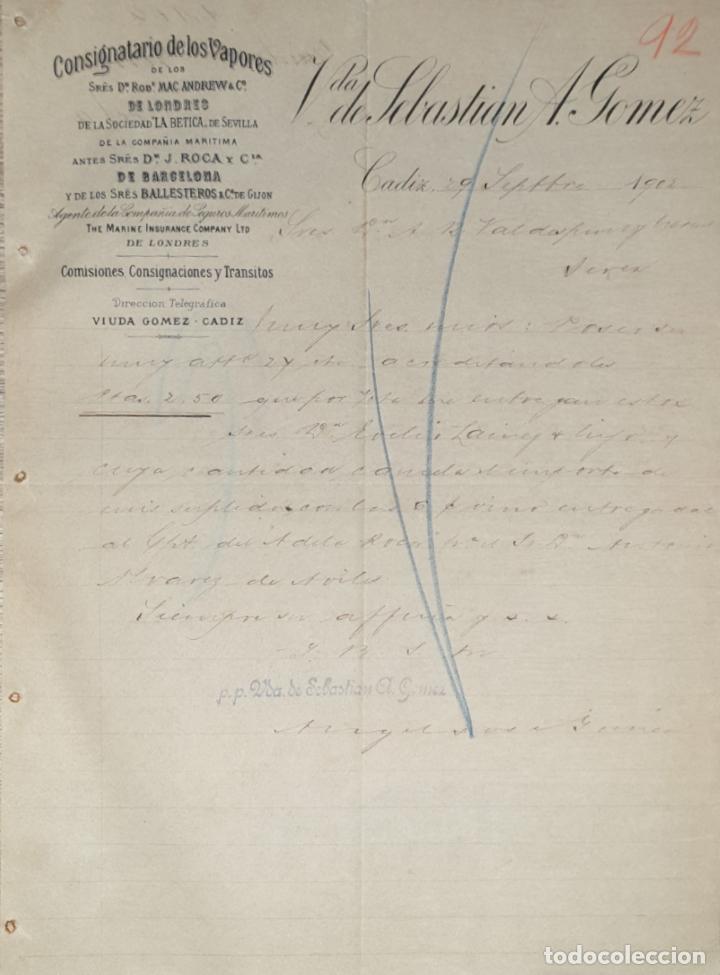 92
Consignatario de los Vapores
DE LOS
SRÉS Dn. ROBt. MAC ANDREW & Cº.
DE LONDRES
DE LA SOCIEDAD "LA BETICA„ DE SEVILLA
DE LA COMPAÑIA MARITIMA
ANTES SRÉS Dn. J. ROCA Y Cia.
DE BARCELONA
Y DE LOS SRÉS BALLESTEROS & Cª. DE GIJON
Agente de la Compañia de Seguros Maritimos
THE MARINE INSURANCE COMPANY LTD
DE LONDRES
Comisiones, Consignaciones y Transitos
Direccion Telegráfica
VIUDA GOMEZ - CADIZ
Vda. de Sebastian A. Gomez
Cadiz, 29 Septbre 1902
Sres Dn A. R. Valdespino y
Jerez
Muy Sres mios: Poseo su
muy attª 27 acreditándoles
Ptas. 2.50 que por me entregan estos
Sres Dn
cuya cantidad cancela el importe de
mis suplidos con las 6 vino entregadas
al del Adela Roca Dn Antonio
Alvarez de Aviles
Siempre su affmo y s. s.
p.p. Vda. de Sebastian A. Gomez
Angel
todocoleccion